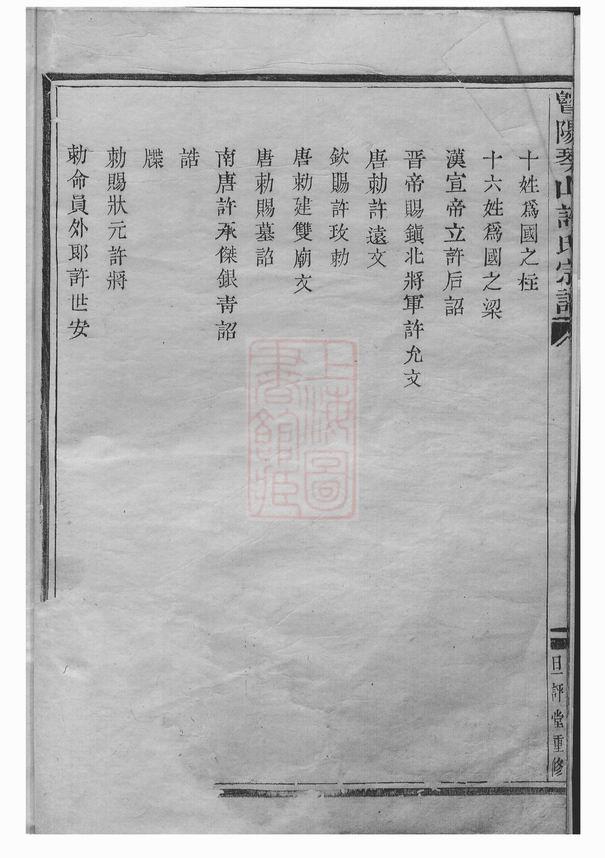 暨陽琴山許氏宗譜
十姓爲國之柱
十六姓爲國之梁
漢宣帝立許后詔
晋帝賜鎭北將軍許允文
唐勅許遠文
欽賜許玫勅
唐勅建雙廟文
唐勅賜墓詔
南唐許承傑銀靑詔
誥
牒
勅賜狀元許將
勅命員外郎許世安
一
旦評堂重修
上海圖書館藏